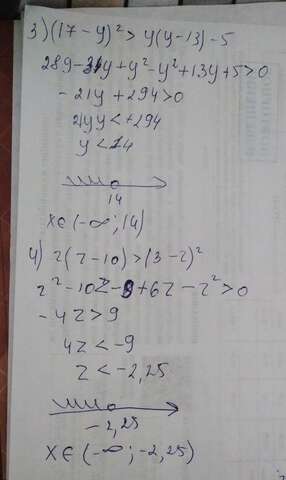 3) (17-y)² > y(y-13)-5
289-34y+y²-y²+13y+5>0
-21y+294>0
21y<+294
y<14
14
x∈(-∞;14)
4) z(z-10)>(3-z)²
z²-10z-9+6z-z²>0
-4z>9
4z<-9
z<-2,25
-2,25
x∈(-∞;-2,25)